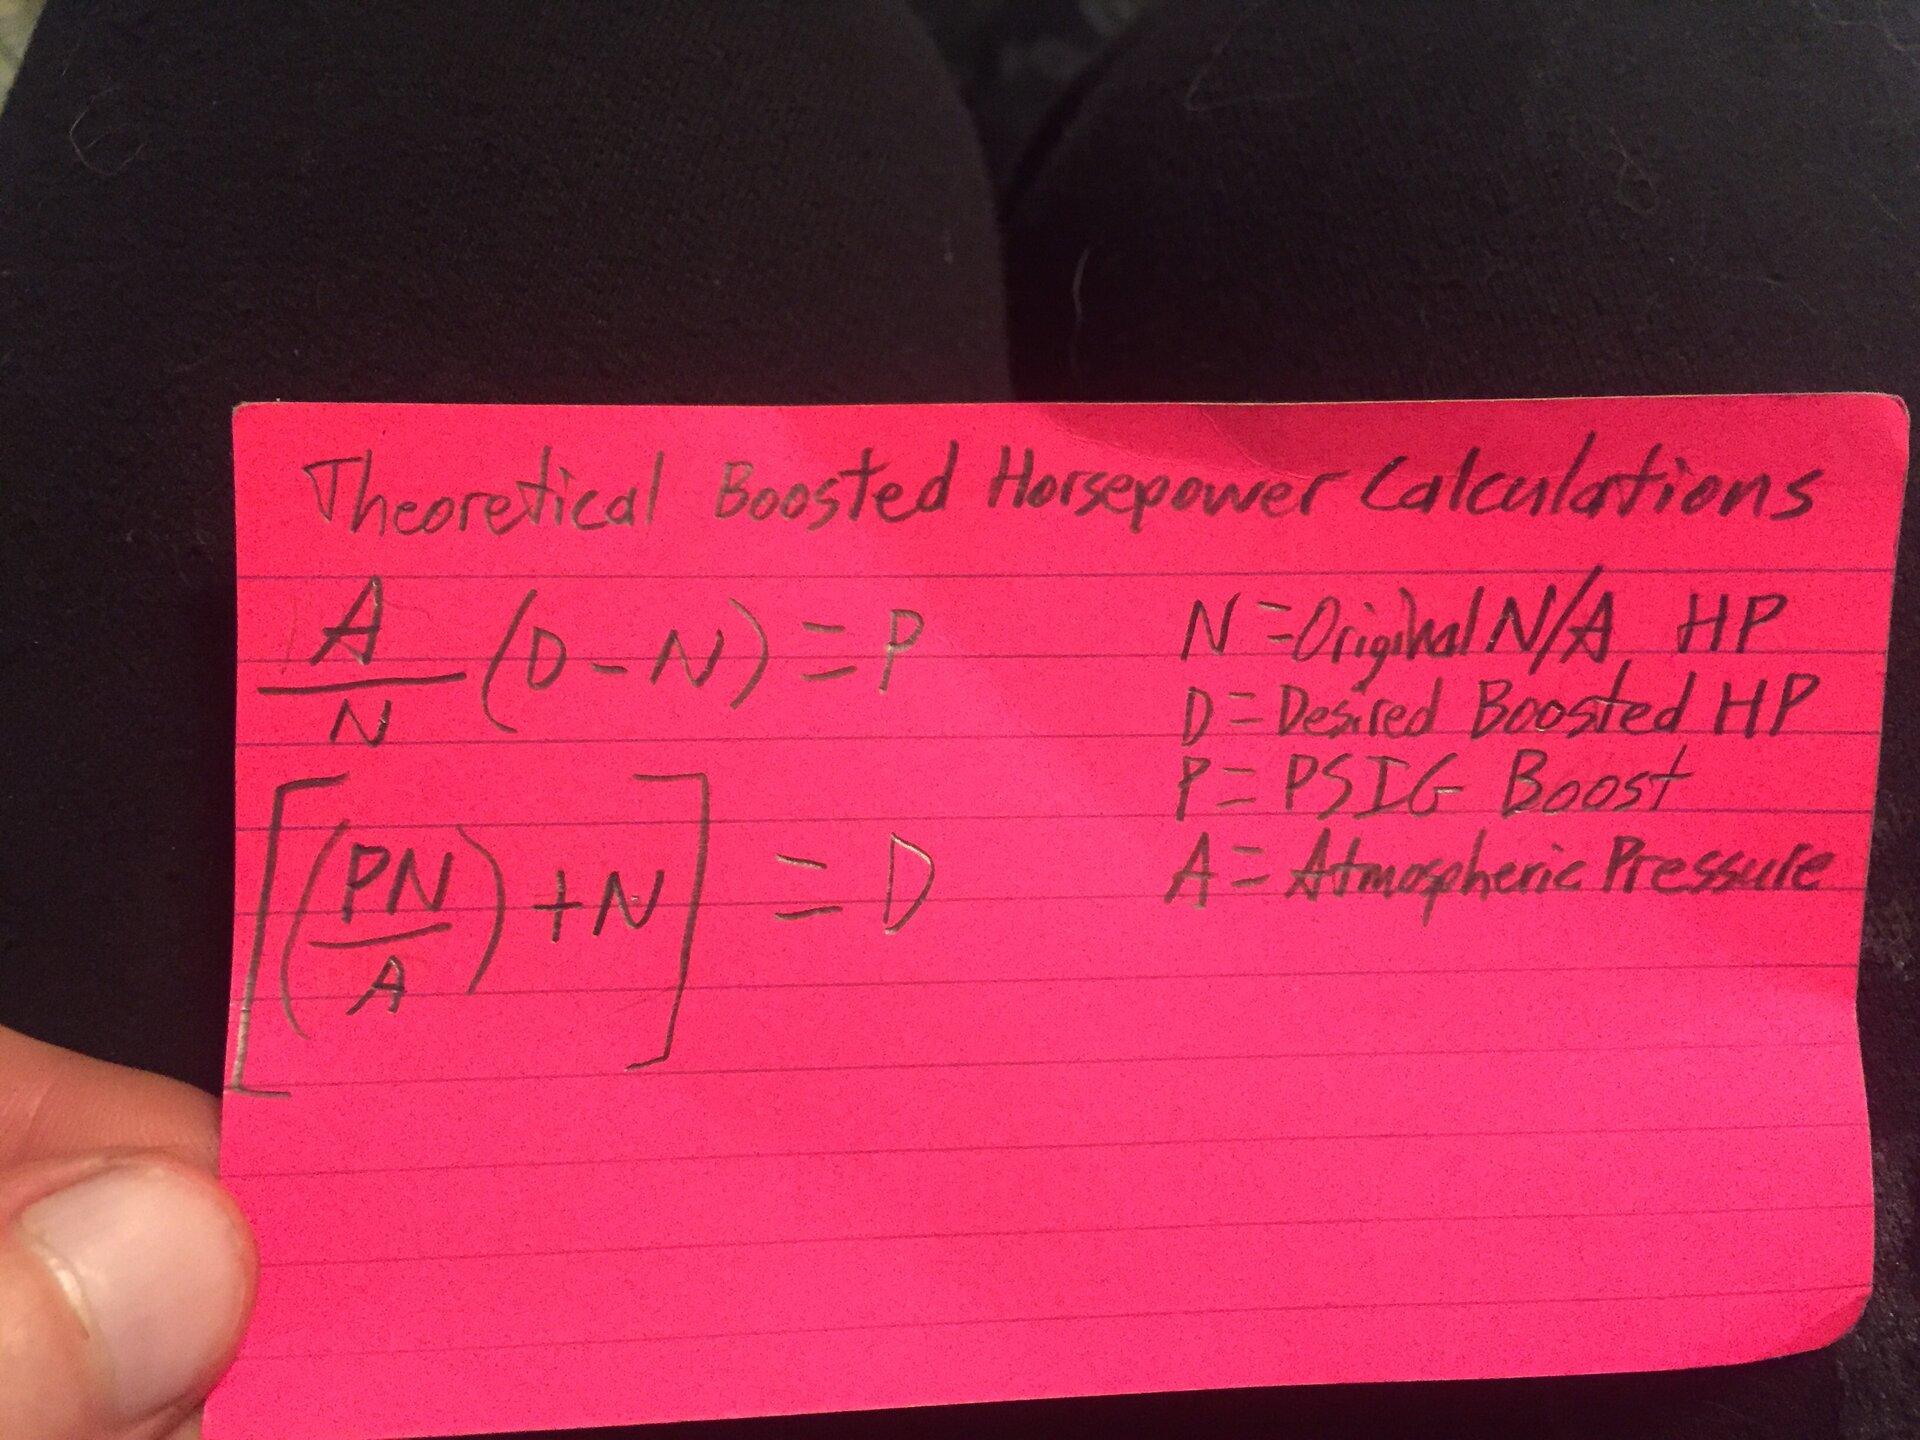 Theoretical Boosted Horsepower Calculations
A/N (D-N) = P
[(PN/A) + N] = D
N = Original N/A HP
D = Desired Boosted HP
P = PSIG Boost
A = Atmospheric Pressure